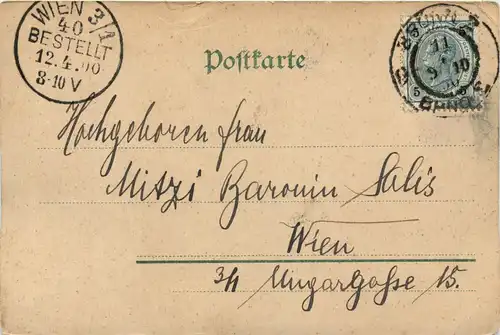 WIEN 3/1
40
BESTELLT
12.4.00
8-10 V
Postkarte
11
5 5
Hochgeboren Frau
Mitzi Baronin Salis
Wien
3/1 Ungargasse 15.